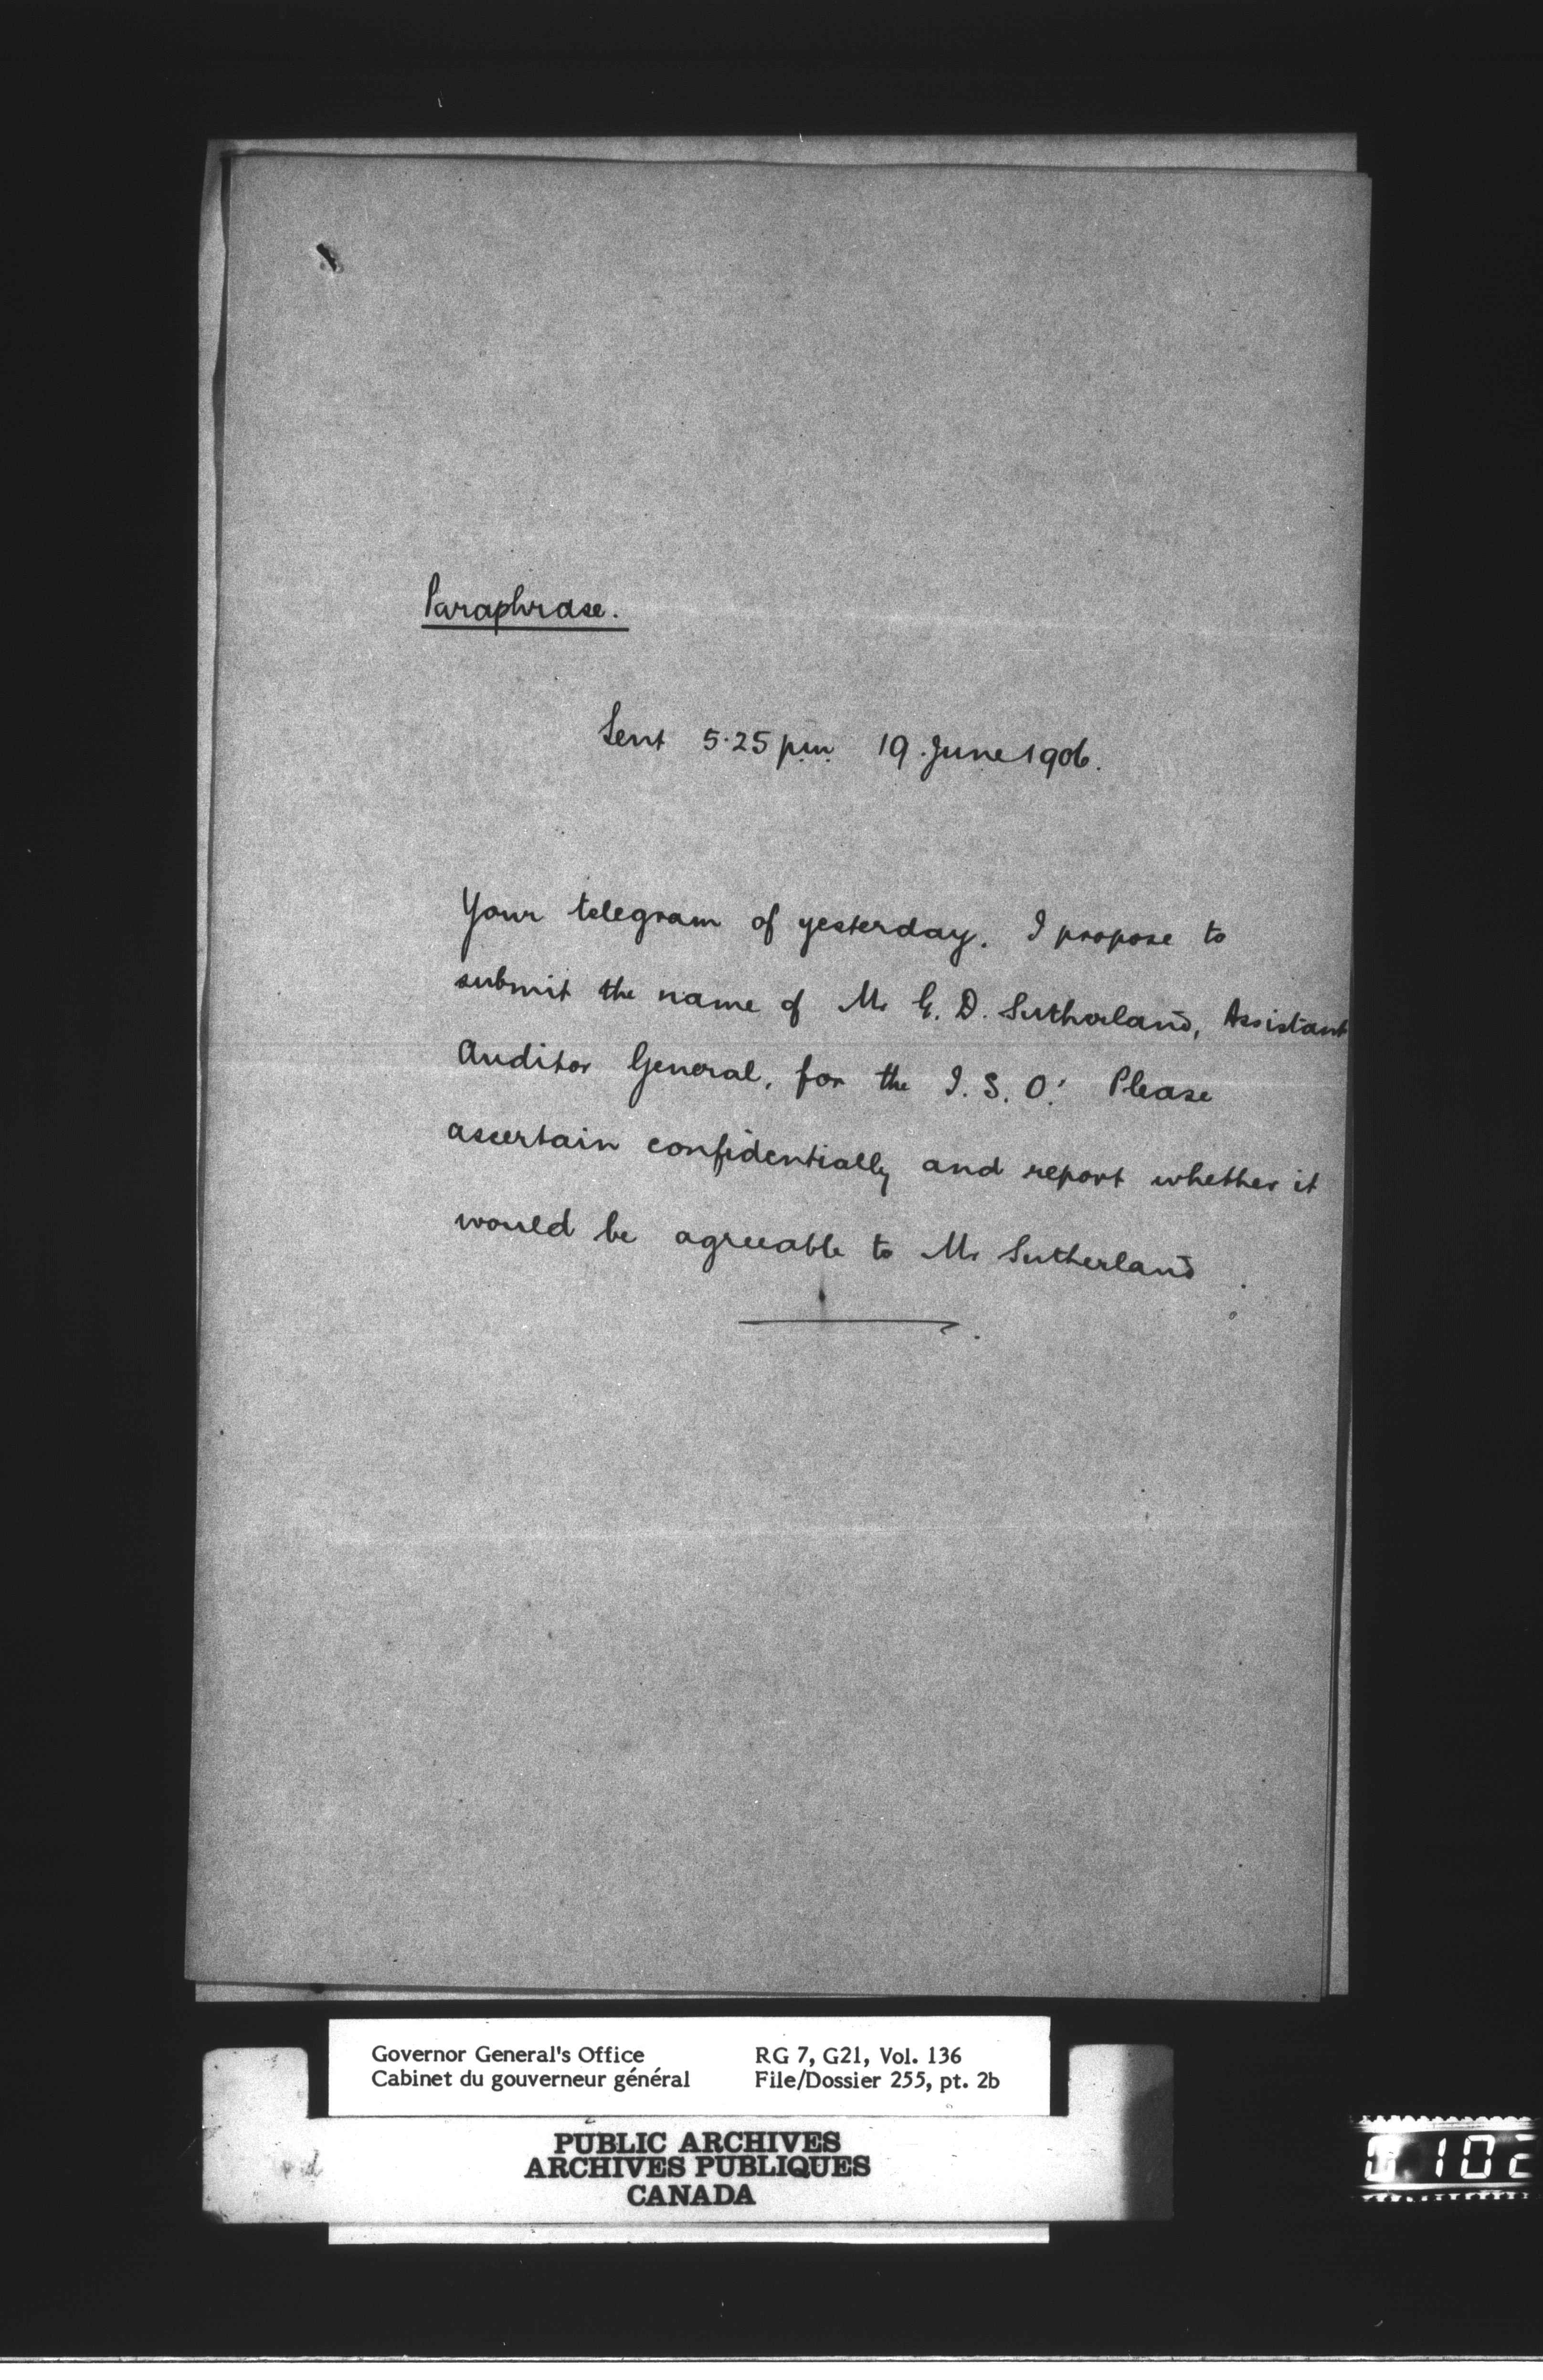 Paraphrase.
Sent 5.25 pm 19. June 1906.
Your telegram of yesterday. I propose to
submit the name of Mr E. D. Sutherland, Assistant
Auditor General, for the I. S. O. Please
ascertain confidentially and report whether it
would be agreeable to Mr Sutherland.
Governor General's Office RG 7, G21, Vol. 136
Cabinet du gouverneur général File/Dossier 255, pt. 2b
PUBLIC ARCHIVES
ARCHIVES PUBLIQUES
CANADA